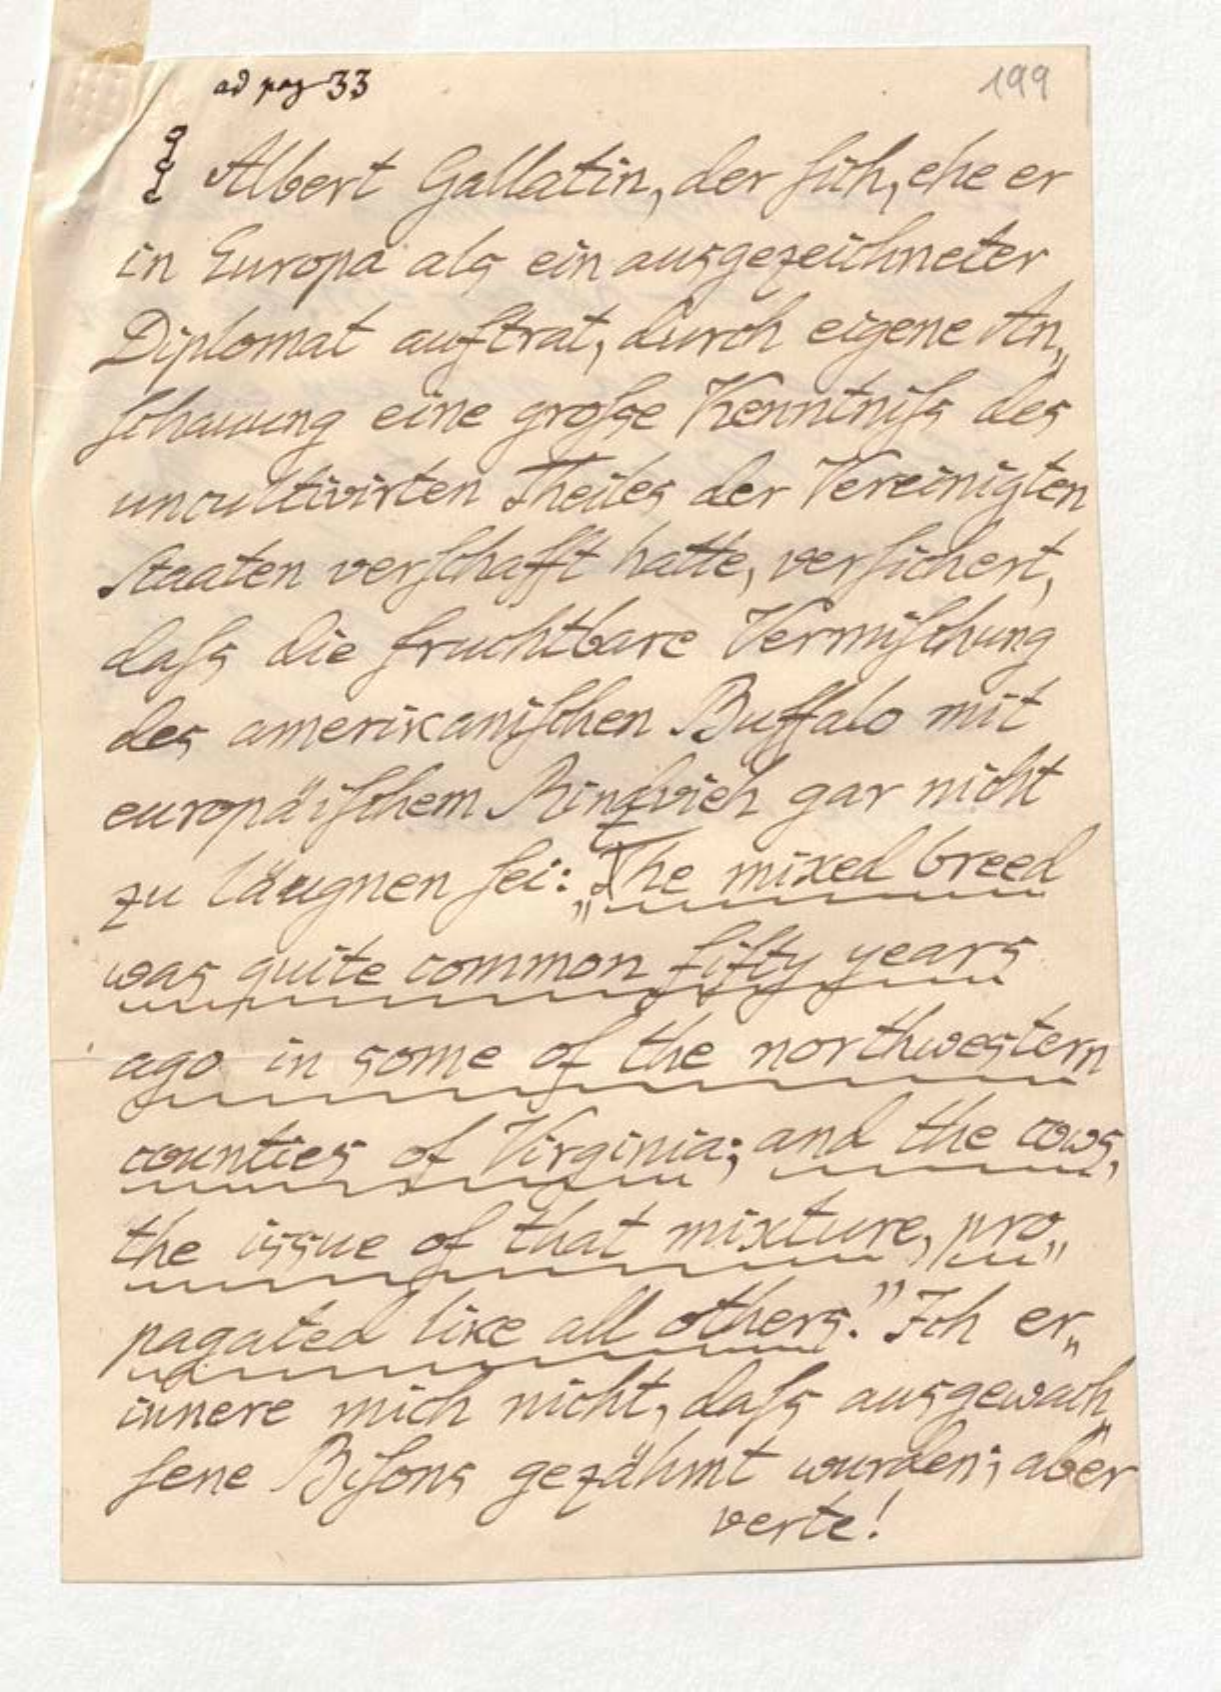 ad pag 33
199
Albert Gallatin, der sich, ehe er
in Europa als ein ausgezeichneter
Diplomat auftrat, durch eigene An„
schauung eine große Kenntniß des
uncultivirten Theiles der Vereinigten
Staaten verschafft hatte, versichert,
daß die fruchtbare Vermischung
des amerikanischen Buffalo mit
europäischem Rindvieh gar nicht
zu läugnen sei: „The mixed breed
was quite common fifty years
ago in some of the northwestern
counties of Virginia; and the cows,
the issue of that mixture, pro„
pagated like all others.” Ich er„
innere mich nicht, daß ausgewach„
sene Bisons gezähmt wurden; aber
verte!